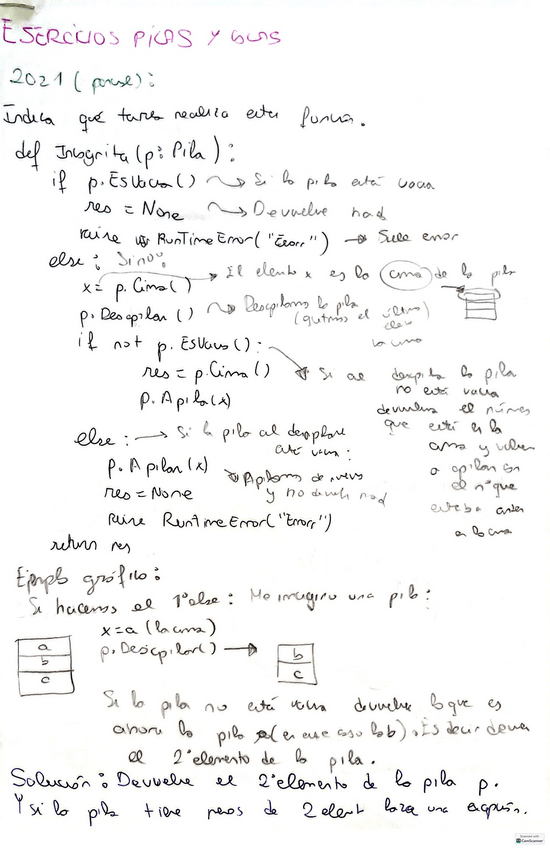 EJERCICIOS PILAS Y COLAS
2021 (parcial):
Indica qué tarea realiza esta función.
def Incognita (p: Pila):
if p.EsVacia() → Si la pila está vacía
res = None → Devuelve nad
raise RunTimeError("Error") → Sale error
else: Sino:
x = p.Cima() → El elemento x es la cima de la pila
p.Desapilar() → Desapilamos la pila
(quitamos el último
la cima
if not p.EsVacia():
res = p.Cima() Si al desapilar la pila
no está vacía
p.Apila(x)
devuelve el número
que está en la
cima y vuelve
a apilar en
el nº que
estaba antes
a la cima
else: → Si la pila al desapilar
está vacía:
p.Apilar(x) Apilamos de nuevo
y no devuelve nad
res = None
raise RunTimeError("Error")
return res
Ejemplo gráfico:
Si hacemos el 1º else: Me imagino una pila:
x = a (la cima)
p.Desapilar() →
a
b
c
b
c
Si la pila no está vacía devuelve lo que es
ahora la pila (en ese caso la b). Es decir devuel
el 2º elemento de la pila.
Solución: Devuelve el 2º elemento de la pila p.
Y si la pila tiene menos de 2 element lanza una excepción.
Scanned with
CamScanner